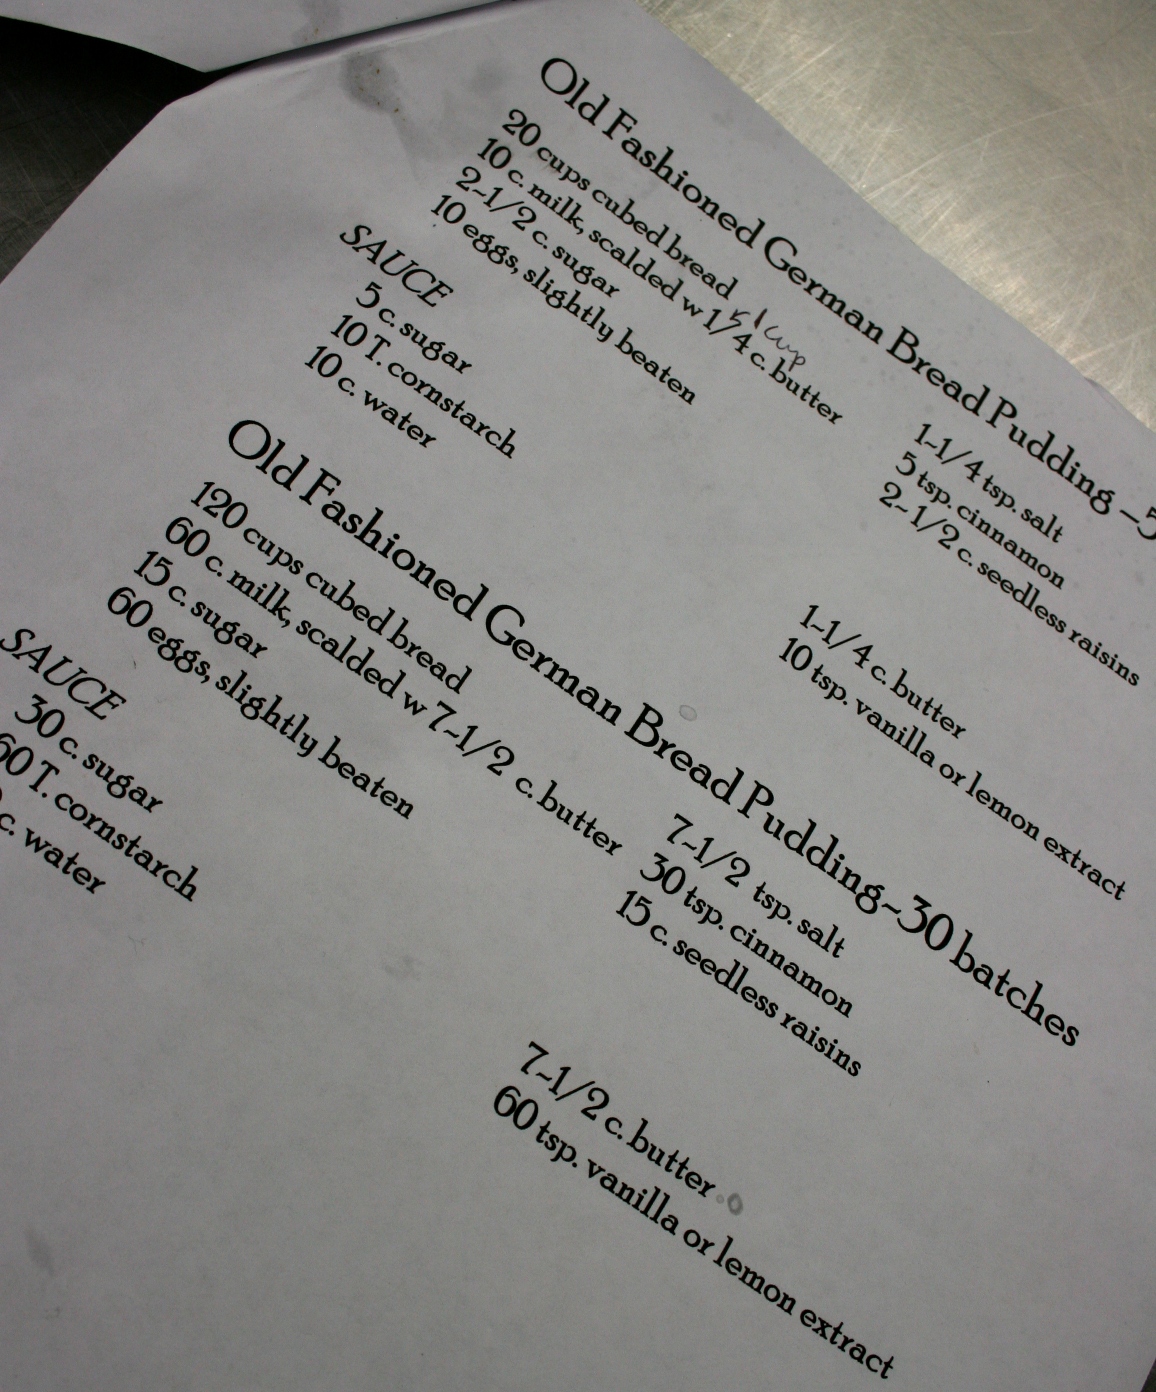 Old Fashioned German Bread Pudding -5
20 cups cubed bread
10 c. milk, scalded w 1/4 c. butter
1 cup
2-1/2 c. sugar
10 eggs, slightly beaten
1-1/4 tsp. salt
5 tsp. cinnamon
2-1/2 c. seedless raisins
SAUCE
5 c. sugar
10 T. cornstarch
10 c. water
1-1/4 c. butter
10 tsp. vanilla or lemon extract
Old Fashioned German Bread Pudding-30 batches
120 cups cubed bread
60 c. milk, scalded w 7-1/2 c. butter
15 c. sugar
60 eggs, slightly beaten
7-1/2 tsp. salt
30 tsp. cinnamon
15 c. seedless raisins
SAUCE
30 c. sugar
60 T. cornstarch
c. water
7-1/2 c. butter
60 tsp. vanilla or lemon extract